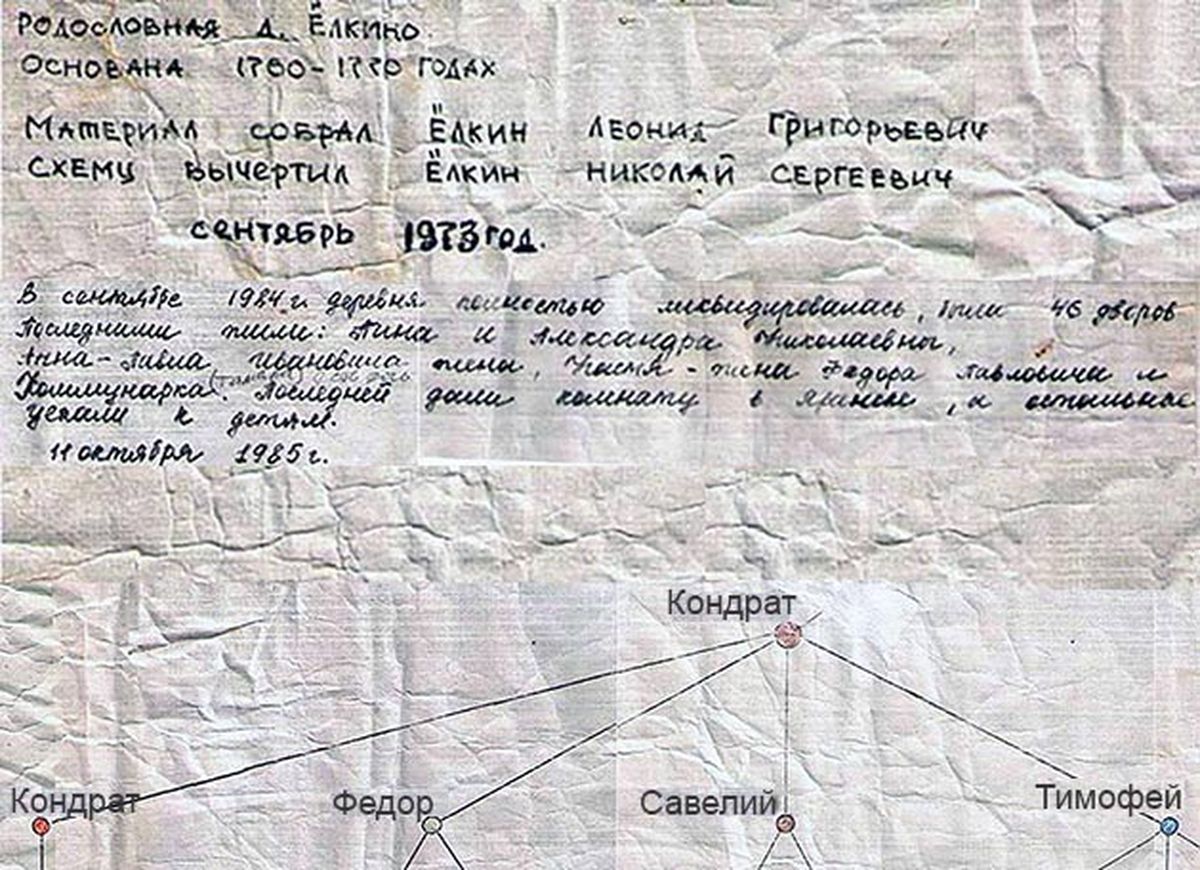 РОДОСЛОВНАЯ Д. ЁЛКИНО.
ОСНОВАНА 1760-1770 ГОДАХ
МАТЕРИАЛ СОБРАЛ ЁЛКИН ЛЕОНИД ГРИГОРЬЕВИЧ
СХЕМУ ВЫЧЕРТИЛ ЁЛКИН НИКОЛАЙ СЕРГЕЕВИЧ
СЕНТЯБРЬ 1973 ГОД.
В сентябре 1984 г. деревня полностью ликвидировалась, были 46 дворов
Последними жили: Анна и Александра Николаевны,
Анна - Павла Ивановича жена, Настя - жена Федора Павловича и
Коммунарка. Последней дали комнату в Яранске, а остальные
уехали к детям.
11 октября 1985 г.
Кондрат
Кондрат
Федор
Савелий
Тимофей